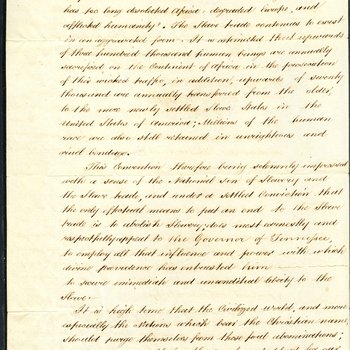 has too long desolated Africa, degraded Europe, and
afflicted humanity". The Slave trade continues to exist
in an aggravated form. It is estimated that upwards
of three hundred thousand human beings are annually
sacrificed on the Continent of Africa in the prosecution
of this wicked traffic, in addition, upwards of seventy
thousand are annually transferred from the older,
to the more newly settled Slave States in the
United States of America; Millions of the human
race are also still retained in unrighteous and
cruel bondage.
This Convention therefore being solemnly impressed
with a sense of the National Sin of Slavery and
the Slave trade, and under a settled Conviction that
the only effectual means to put an end to the Slave
trade is to abolish Slavery; does most earnestly and
respectfully appeal to the Governor of Tennessee,
to employ all that influence and power with which
divine providence has intrusted him
to secure immediate and unconditional liberty to the
Slave.
It is high time that the Civilized world, and more
especially the Nations which bear the Christian name,
should purge themselves from these foul abominations;